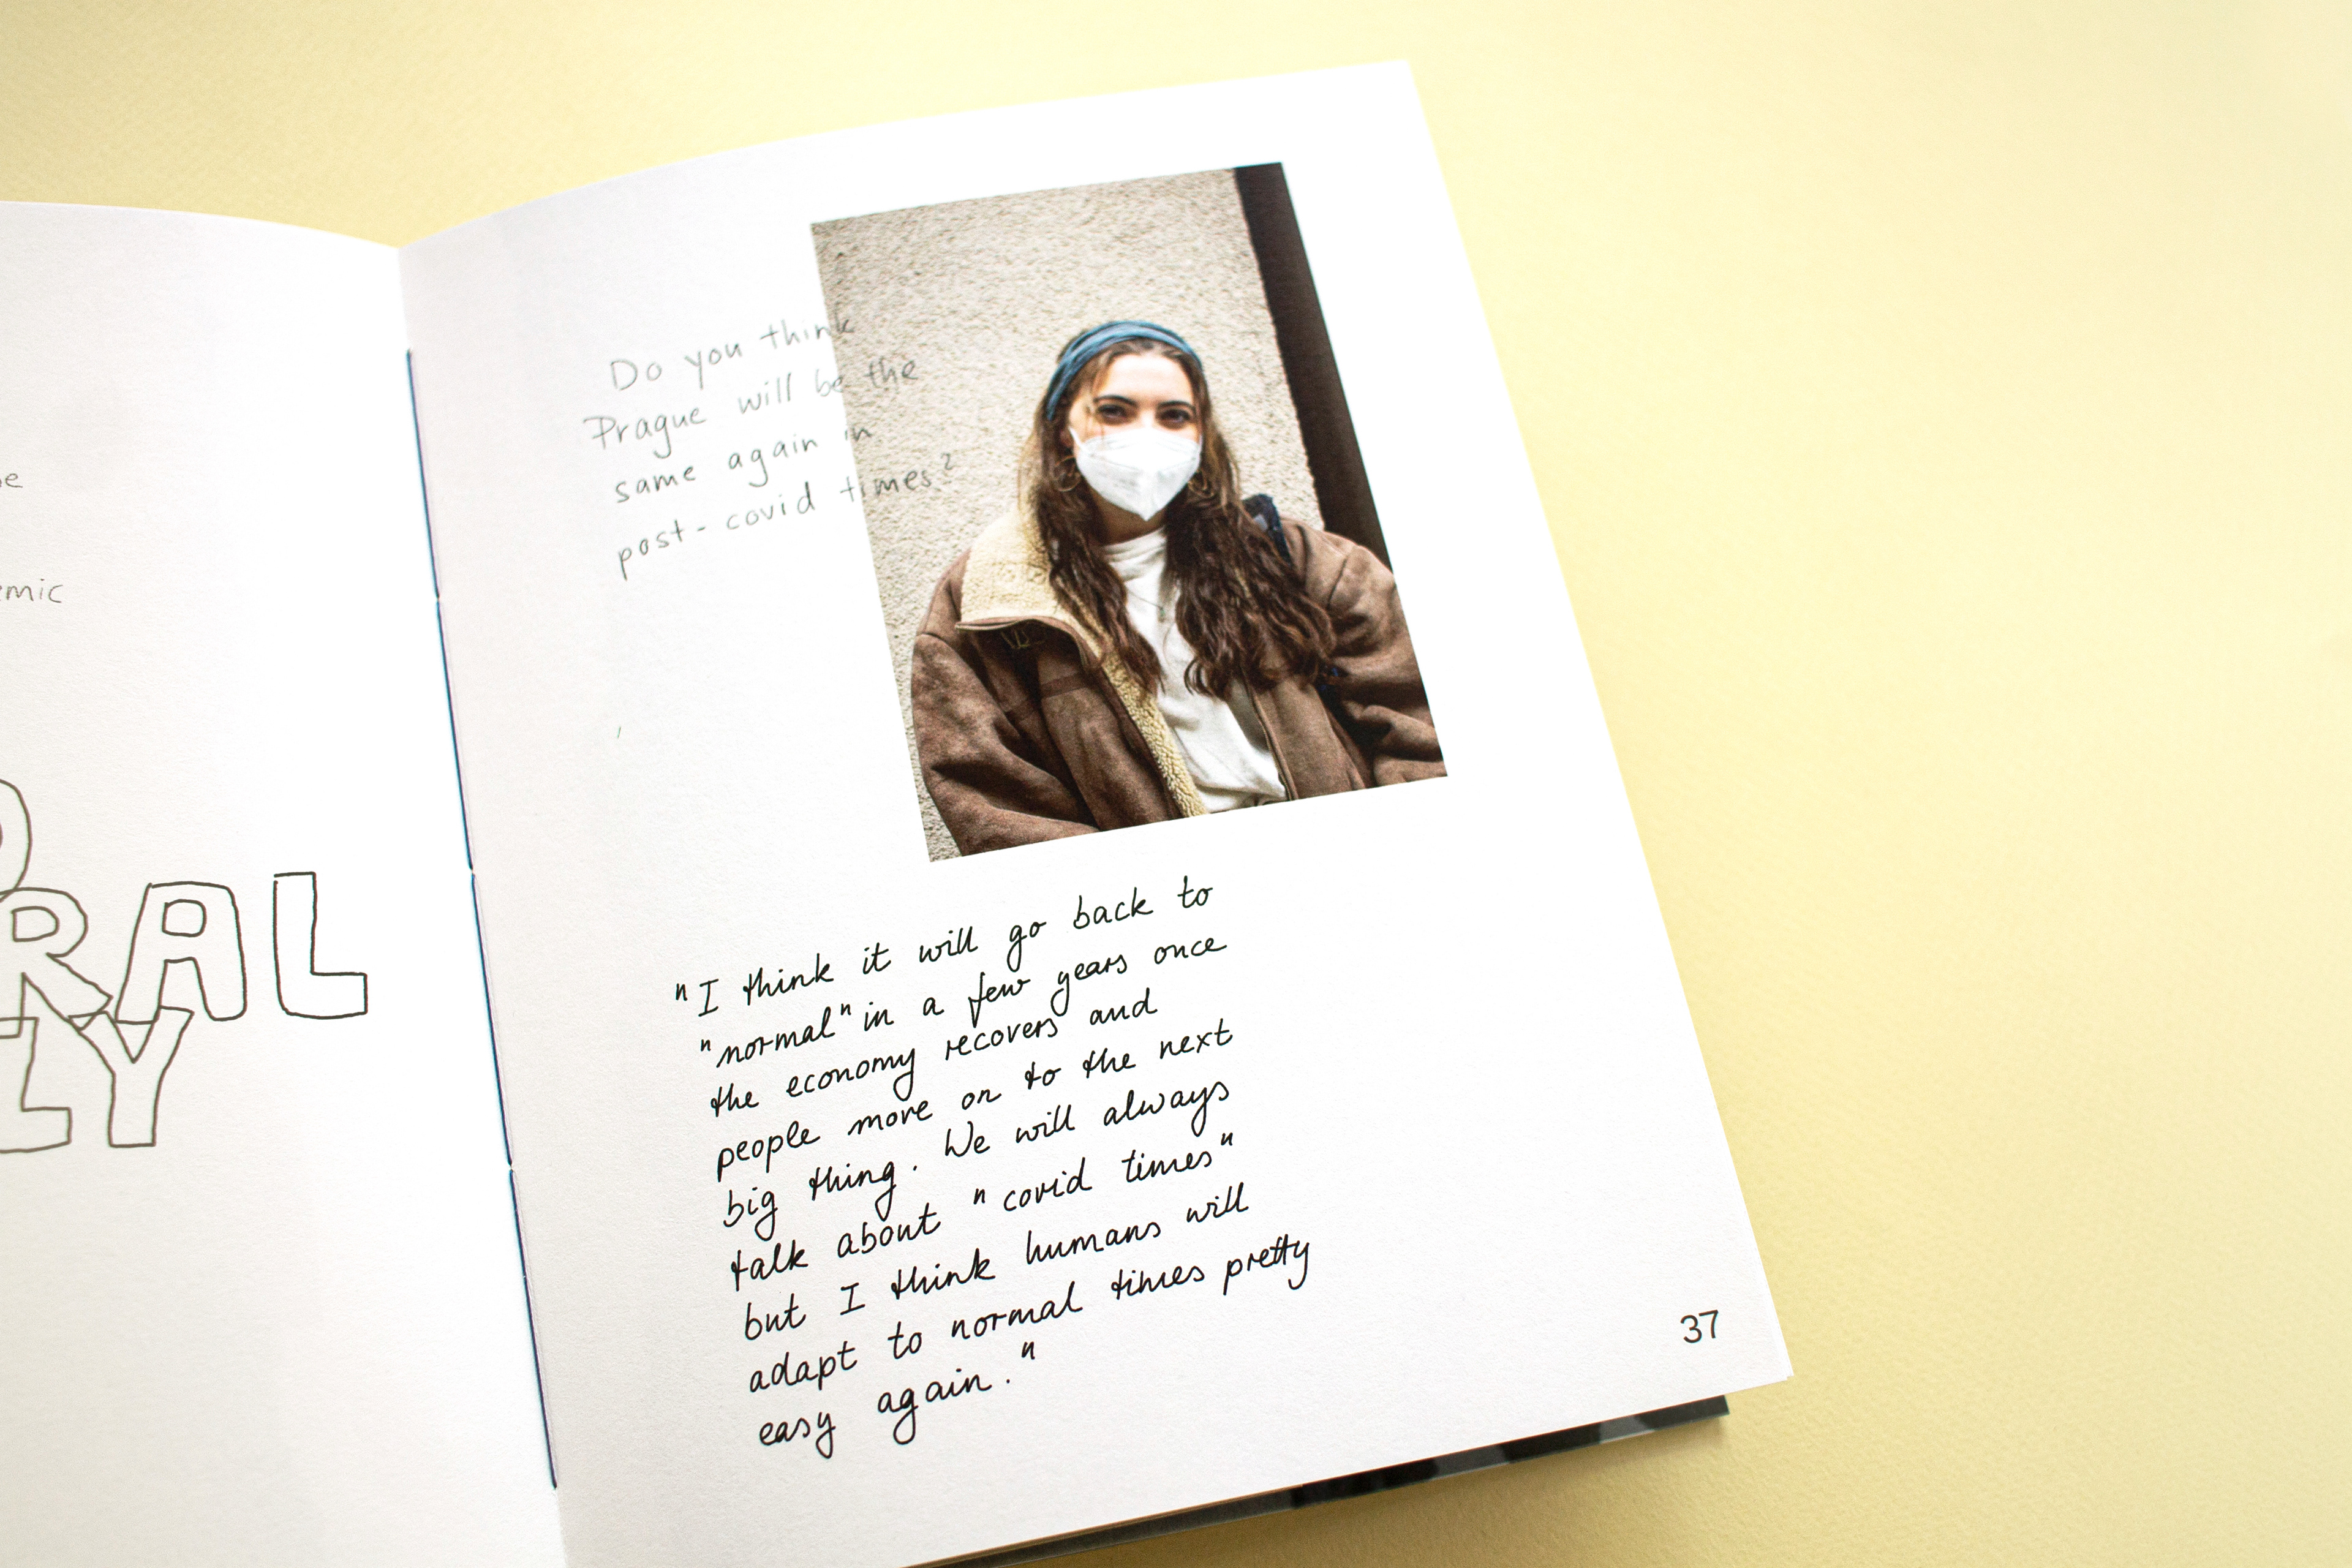 emic
RAL
LY
Do you think
Prague will be the
same again in
post-covid times?
"I think it will go back to
"normal" in a few years once
the economy recovers and
people more on to the next
big thing. We will always
talk about "covid times"
but I think humans will
adapt to normal times pretty
easy again."
37